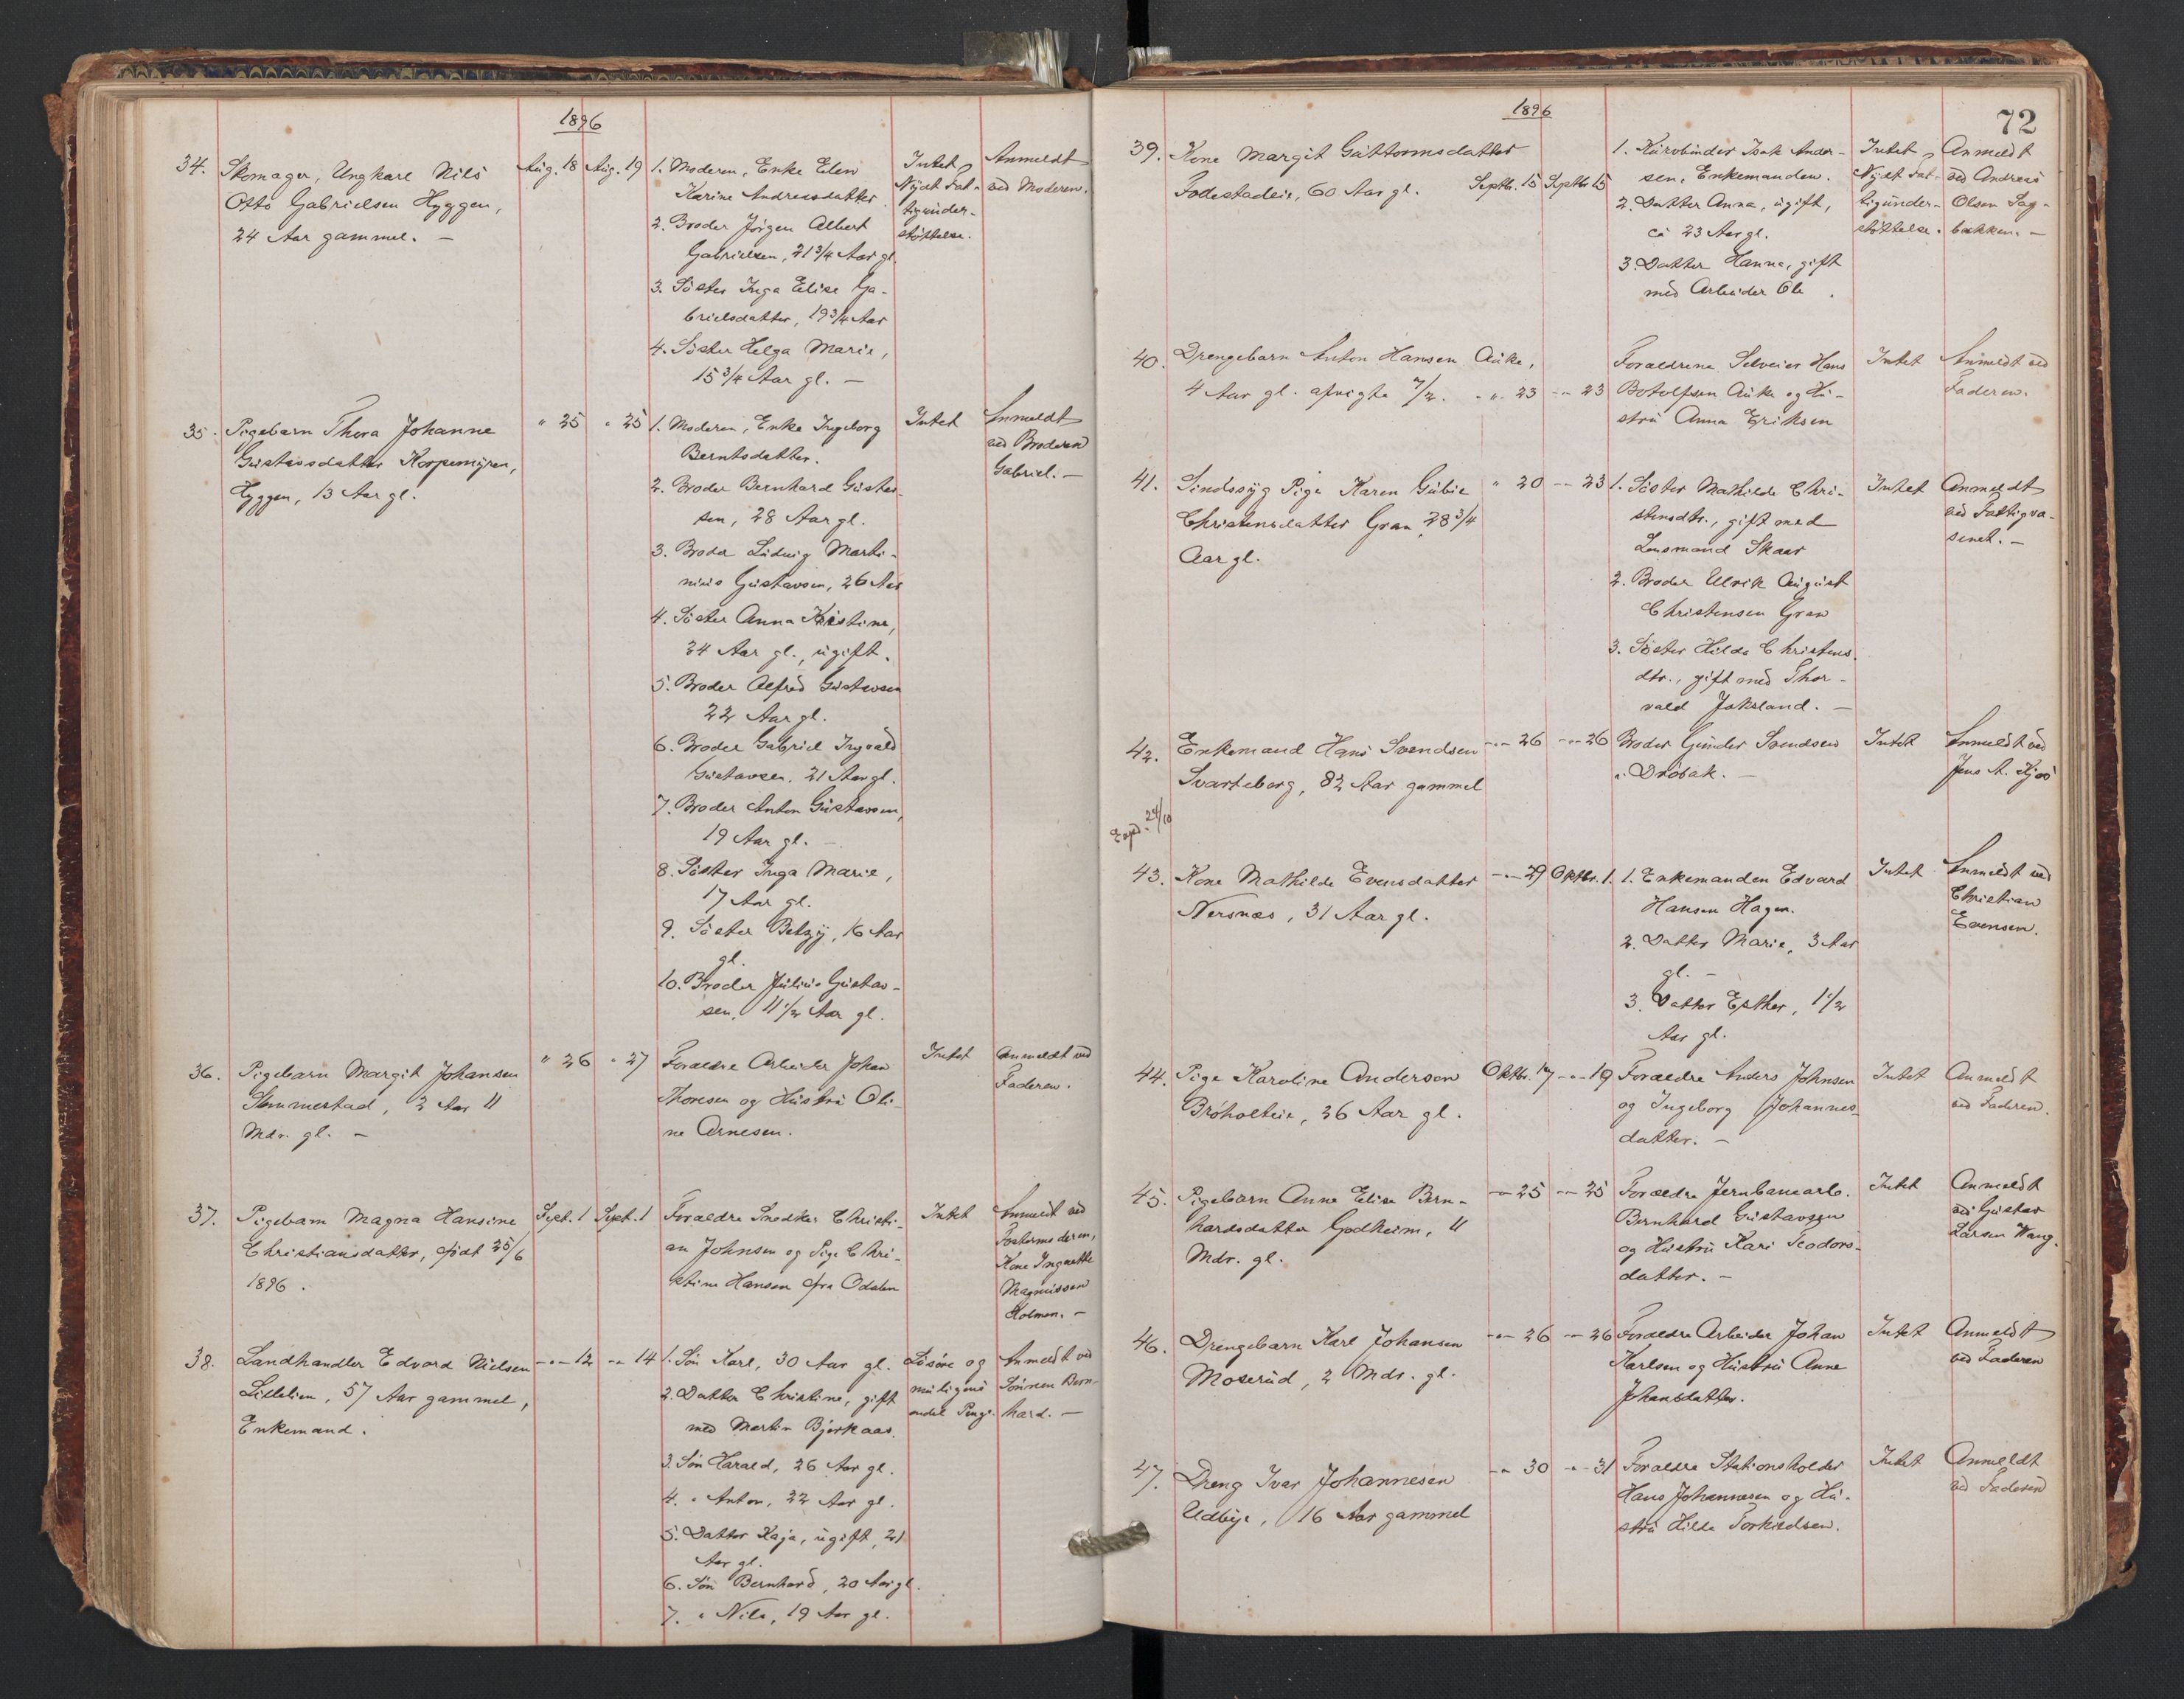 1896
34. Skomager, Ungkarl Nils
Otto Gabrielsen Hyggen,
24 Aar gammel. —
Aug. 18 Aug. 19
1. Moderen, Enke Elen
Karine Andreasdatter
2. Broder Jörgen Albert
Gabrielsen, 21 3/4 Aar gl.
3. Söster Inga Elise Ga-
brielsdatter, 19 3/4 Aar
4. Söster Helga Marie,
15 3/4 Aar gl. —
Intet
Nydt Fat-
tigunder-
støttelse.
Anmeldt
ved Moderen.
35. Pigebarn Thora Johanne
Gustavsdatter Korpemyren,
Hyggen, 13 Aar gl.
" 25 " 25
1. Moderen, Enke Ingeborg
Berntsdatter.
2. Broder Bernhard Gustav-
sen, 28 Aar gl.
3. Broder Ludvig Marti-
nius Gustavsen, 26 Aar
4. Söster Anna Kristine,
24 Aar gl., ugift.
5. Broder Alfred Gustavsen
22 Aar gl.
6. Broder Gabriel Ingvald
Gustavsen, 21 Aar gl.
7. Broder Anton Gustavsen,
19 Aar gl. —
8. Söster Inga Marie,
17 Aar gl.
9. Söster Betzy, 16 Aar
gl.
10. Broder Julius Gustav-
sen, 11 1/2 Aar gl.
Intet
Anmeldt
ved Broderen
Gabriel. —
36. Pigebarn Margit Johansen
Slemmestad, 2 Aar 11
Mdr. gl. —
" 26 " 27
Forældre Arbeider Johan
Thoresen og Hustru Oli-
ne Arnesen.
Intet
Anmeldt ved
Faderen.
37. Pigebarn Magna Hansine
Christiansdatter, født 25/6
1896.
Sept. 1 Sept. 1
Forældre Snedker Christi-
an Johnsen og Pige Chri-
stine Hansen fra Odalen
Intet
Anmeldt ved
Fostermoderen,
Kone
Magnussen
Holmen. —
38. Landhandler Edvard Nielsen
Lillelien, 57 Aar gammel,
Enkemand.
—"— 12 —"— 14
1. Sön Karl, 30 Aar gl.
2. Datter Christine, gift
med Martin Bjerkaas.
3. Sön Harald, 26 Aar gl.
4. " Anton, 22 Aar gl.
5. Datter Kaja, ugift, 21
Aar gl.
6. Sön Bernhard, 20 Aar gl.
7. " Nils, 19 Aar gl.
Lösöre og
muligens
endel Penge.
Anmeldt ved
Sönnen Bern-
hard. —
1896
72
39. Kone Margit Guttormsdatter
Fodestadeie, 60 Aar gl.
Septbr. 15 Septbr. 15
1. Kurvbinder Isak Ander-
sen, Enkemanden.
2. Datter Anna, ugift,
ca 23 Aar gl.
3. Datter Hanna, gift
med Arbeider Ole .
Intet
Nydt Fat-
tigunder-
støttelse.
Anmeldt
ved Andreas
Olsen Sag-
bakken. —
40. Drengebarn Anton Hansen Auke,
4 Aar gl. afvigte 7/2.
—"— 23 —"— 23
Forældrene Selveier Hans
Botolfsen Auke og Hu-
stru Anna Eriksen
Intet
Anmeldt ved
Faderen.
41. Sindssyg Pige Karen Gubie
Christensdatter Gran, 28 3/4
Aar gl.
" 20 —"— 23
1. Söster Mathilde Chri-
stensdtr., gift med
Lensmand Skaar
2. Broder Ulrik August
Christensen Gran
3. Söster Hilda Christens-
dtr., gift med Thor-
vald Joksland. —
Intet
Anmeldt
ved Fattigvæ-
senet. —
42. Enkemand Hans Svendsen
Svarteborg, 82 Aar gammel
—"— 26 —"— 26
Broder Gunder Svendsen
i Dröbak. —
Intet
Anmeldt ved
Jens A. Kjos
Exp. 24/10
43. Kone Mathilde Evensdatter
Nersnæs, 31 Aar gl.
—"— 29 Oktbr. 1.
1. Enkemanden Edvard
Hansen Hagen.
2. Datter Marie, 3 Aar
gl. —
3. Datter Esther, 1 1/2
Aar gl.
Intet
Anmeldt ved
Christian
Evensen.
44. Pige Karoline Andersen
Bröholteie, 26 Aar gl.
Oktbr. 17 —"— 19
Forældre Anders Johnsen
og Ingeborg Johannes-
datter. —
Intet
Anmeldt
ved Faderen.
45. Pigebarn Anne Elise Bern-
hardsdatter Godheim, 11
Mdr. gl.
—"— 25 —"— 25
Forældre Jernbanearb.
Bernhard Gustavsen
og Hustru Kari Teodors-
datter. —
Intet
Anmeldt
ved Gustav
Larsen Wang.
46. Drengebarn Karl Johansen
Moserud, 2 Mdr. gl.
—"— 26 —"— 26
Forældre Arbeider Johan
Karlsen og Hustru Anne
Johansdatter.
Intet
Anmeldt
ved Faderen
47. Dreng Ivar Johannesen
Udbye, 16 Aar gammel
—"— 30 —"— 31
Forældre Stationsholder
Hans Johannesen og Hu-
stru Hilda Torkildsen.
Intet
Anmeldt
ved Faderen